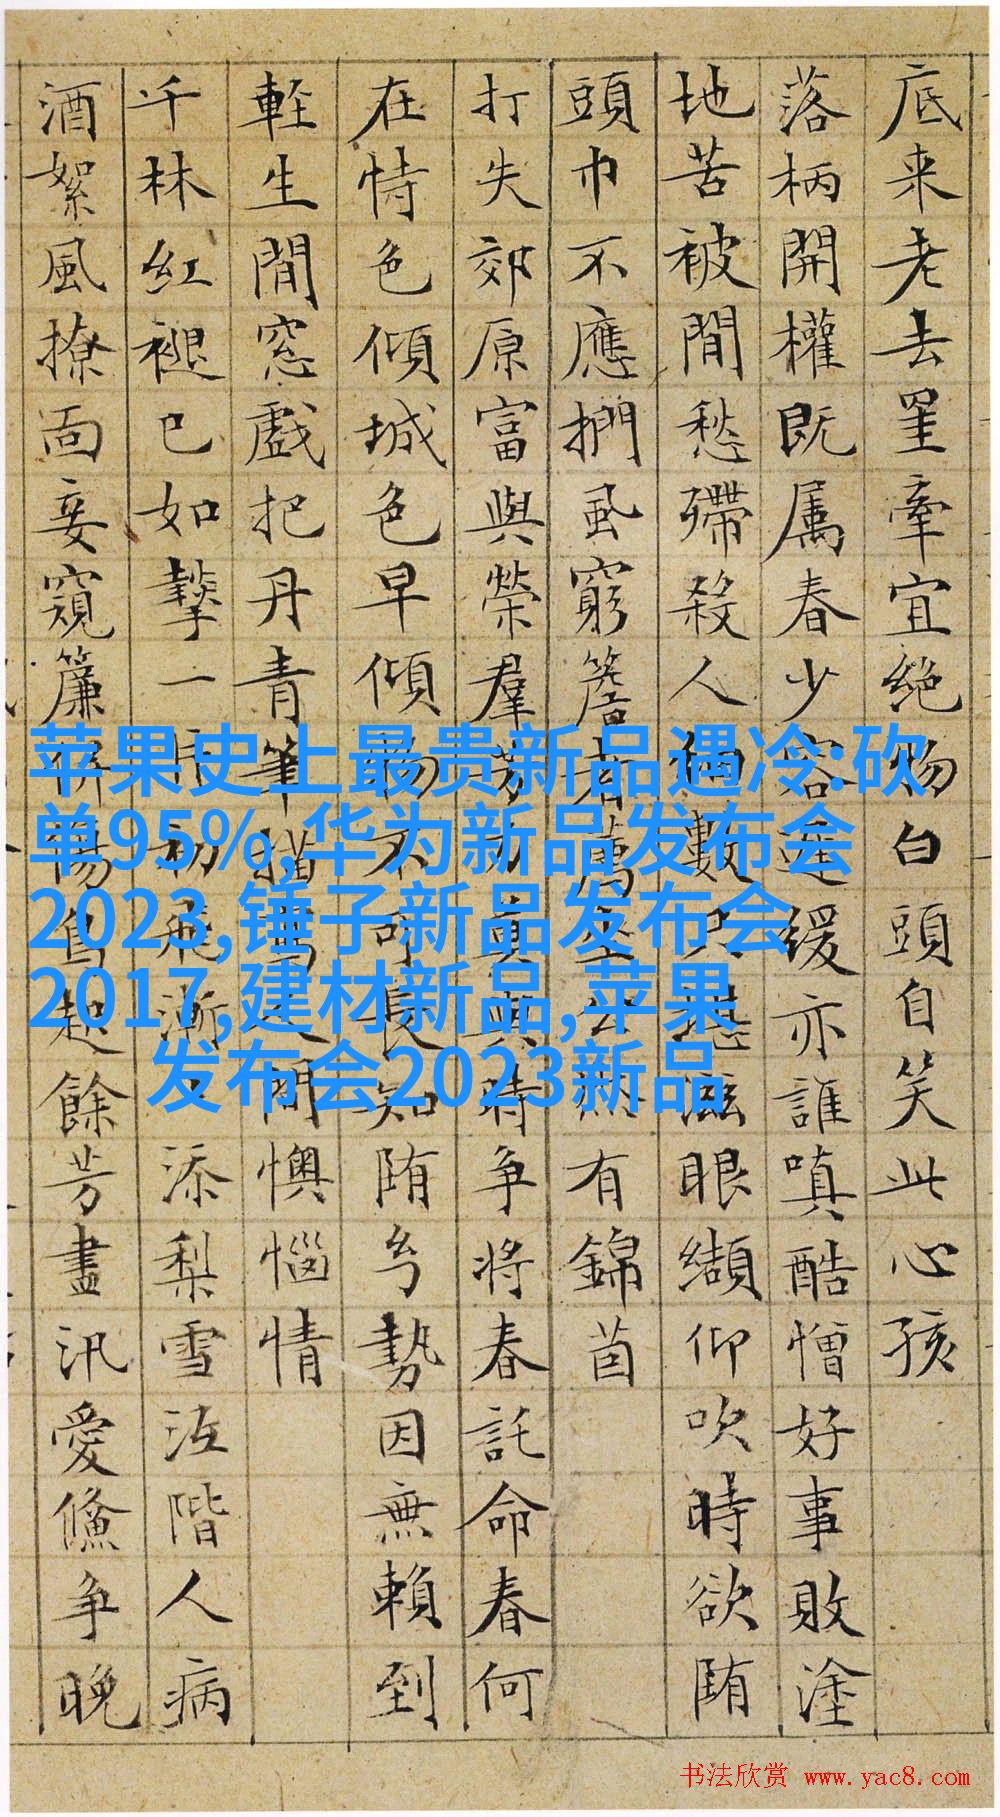 底来老去罣牽宜絶賜白頭自笑此心孩
落柄開權既属春少容遲緩亦誰嗔酷憎好事敗塗
地苦被閒愁殢殺人數眼纈仰吹時欲陏
頭巾不應捫風窮簷有錦茵
打失郊原富與榮羣芳真與時争將春託命春何
在恃色傾城色早傾不呼長知陏兮勢因無賴到
輊生閒窓戲把丹青筆描間懊惱情
千林紅褪已如摮一片初飛漸添梨雪泣階人病
酒絮風撩面妾窺簾傷鳥起餘芳盡汛愛鯈争晚
苹果史上最贵新品遇冷:砍
单95%,华为新品发布会
2023,锤子新品发布会
2017,建材新品,苹果
发布会2023新品
书法欣赏 www.yac8.com